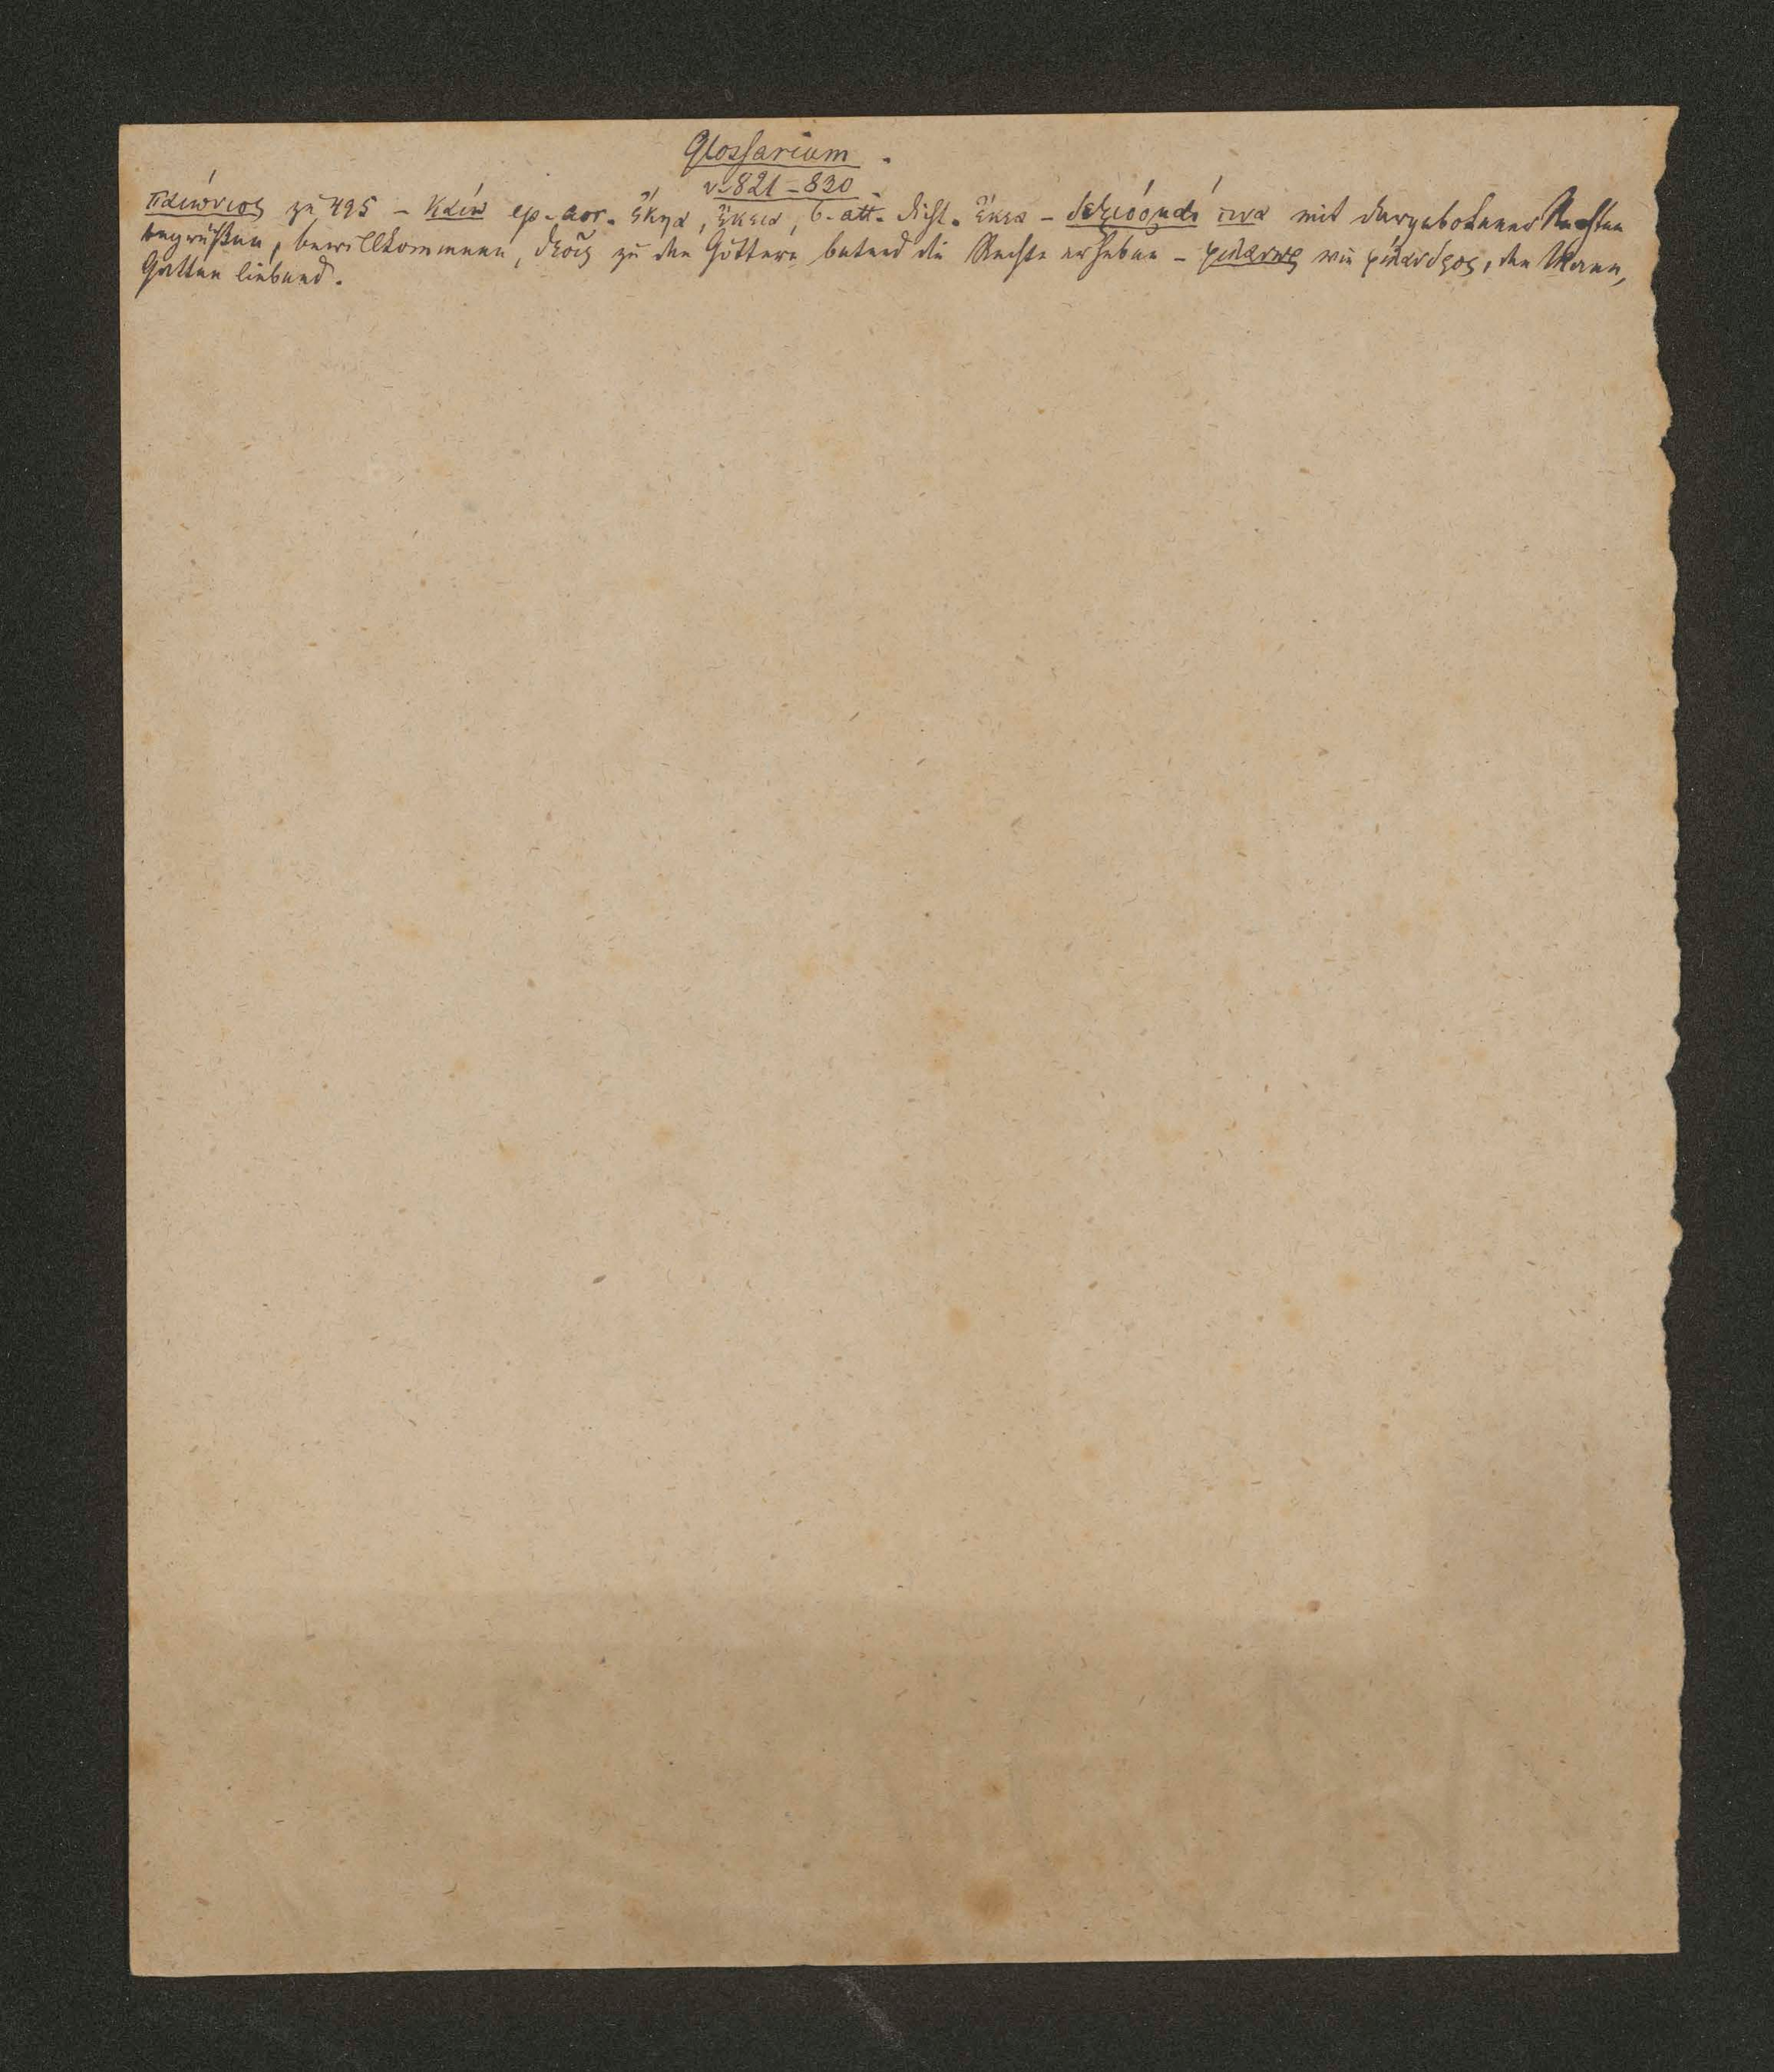 Glossarium.
v. 821–830.
παιώνιος zu 495 – καίω ep. aor. ἔκηα, ἔκεια, b. att. Dicht. ἔκεα – δεξιόομαί τινα mit dargebotener Rechten
begrüßen, bewillkommnen, θεοῖς zu den Göttern betend die Rechte erheben – φιλάνωρ wie φίλανδρος, den Mann,
Gatten liebend.